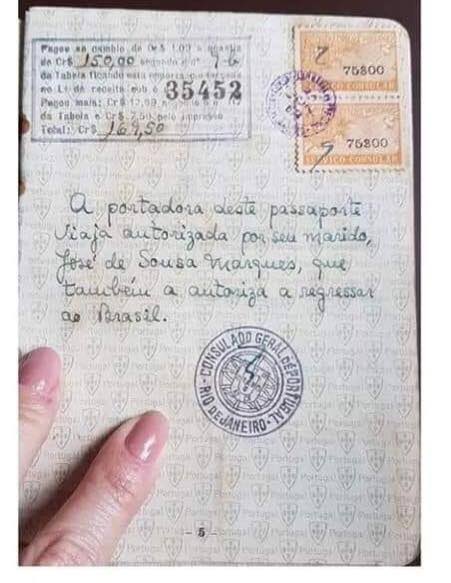 Pagou ao cambio de Cr$ 1,00 a quantia
de Cr$ 150,00 segundo o nº 7-6
da Tabela ficando esta
no Lº de receita sob o 35452
Pagou mais: Cr$ 12,00
da Tabela e Cr$ 7,50 pelo impresso
Total: Cr$ 169,50
75$00
CONSULAR
75$00
SERVIÇO CONSULAR
A portadora deste passaporte
viaja autorizada por seu marido,
José de Sousa Marques, que
também a autoriza a regressar
ao Brasil.
CONSULADO GERAL DE PORTUGAL
RIO DE JANEIRO
- 5 -